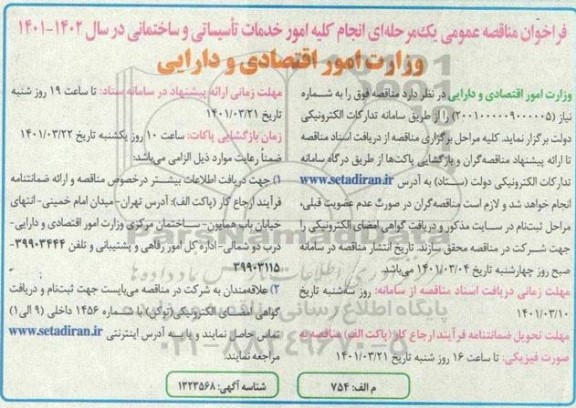 فراخوان مناقصه عمومی یک‌مرحله‌ای انجام کلیه امور خدمات تأسیساتی و ساختمانی در سال ۱۴۰۲-۱۴۰۱
وزارت امور اقتصادی و دارایی
وزارت امور اقتصادی و دارایی در نظر دارد مناقصه فوق را به شماره
نیاز (۲۰۰۱۰۰۰۰۰۹۰۰۰۰۰۵) را از طریق سامانه تدارکات الکترونیکی
دولت برگزار نماید. کلیه مراحل برگزاری مناقصه از دریافت اسناد مناقصه
تا ارائه پیشنهاد مناقصه‌گران و بازگشایی پاکت‌ها از طریق درگاه سامانه
تدارکات الکترونیکی دولت (ستاد) به آدرس www.setadiran.ir
انجام خواهد شد و لازم است مناقصه‌گران در صورت عدم عضویت قبلی،
مراحل ثبت‌نام در سایت مذکور و دریافت گواهی امضای الکترونیکی را
جهت شرکت در مناقصه محقق سازند. تاریخ انتشار مناقصه در سامانه
صبح روز چهارشنبه تاریخ ۱۴۰۱/۰۳/۰۴ می‌باشد.
مهلت زمانی دریافت اسناد مناقصه از سامانه: روز سه‌شنبه تاریخ
۱۴۰۱/۰۳/۱۰
مهلت تحویل ضمانتنامه فرآیند ارجاع کار (پاکت الف) مناقصه به
صورت فیزیکی: تا ساعت ۱۶ روز شنبه تاریخ ۱۴۰۱/۰۳/۲۱
مهلت زمانی ارائه پیشنهاد در سامانه ستاد: تا ساعت ۱۹ روز شنبه
تاریخ ۱۴۰۱/۰۳/۲۱
زمان بازگشایی پاکات: ساعت ۱۰ روز یکشنبه تاریخ ۱۴۰۱/۰۳/۲۲
ضمناً رعایت موارد ذیل الزامی می‌باشد:
۱) جهت دریافت اطلاعات بیشتر درخصوص مناقصه و ارائه ضمانتنامه
فرآیند ارجاع کار (پاکت الف): آدرس تهران-میدان امام خمینی-انتهای
خیابان باب همایون-ساختمان مرکزی وزارت امور اقتصادی و دارایی-
درب دو شمالی-اداره کل امور رفاهی و پشتیبانی و تلفن ۳۹۹۰۳۴۴۴-
۳۹۹۰۳۱۱۵
۲) علاقه‌مندان به شرکت در مناقصه می‌بایست جهت ثبت‌نام و دریافت
گواهی امضای الکترونیکی (توکن) با شماره ۱۴۵۶ داخلی (۹ الی ۱)
تماس حاصل نمایند و یا به آدرس اینترنتی www.setadiran.ir
مراجعه نمایند.
م الف: ۷۵۴
شناسه آگهی: ۱۳۲۳۵۶۸